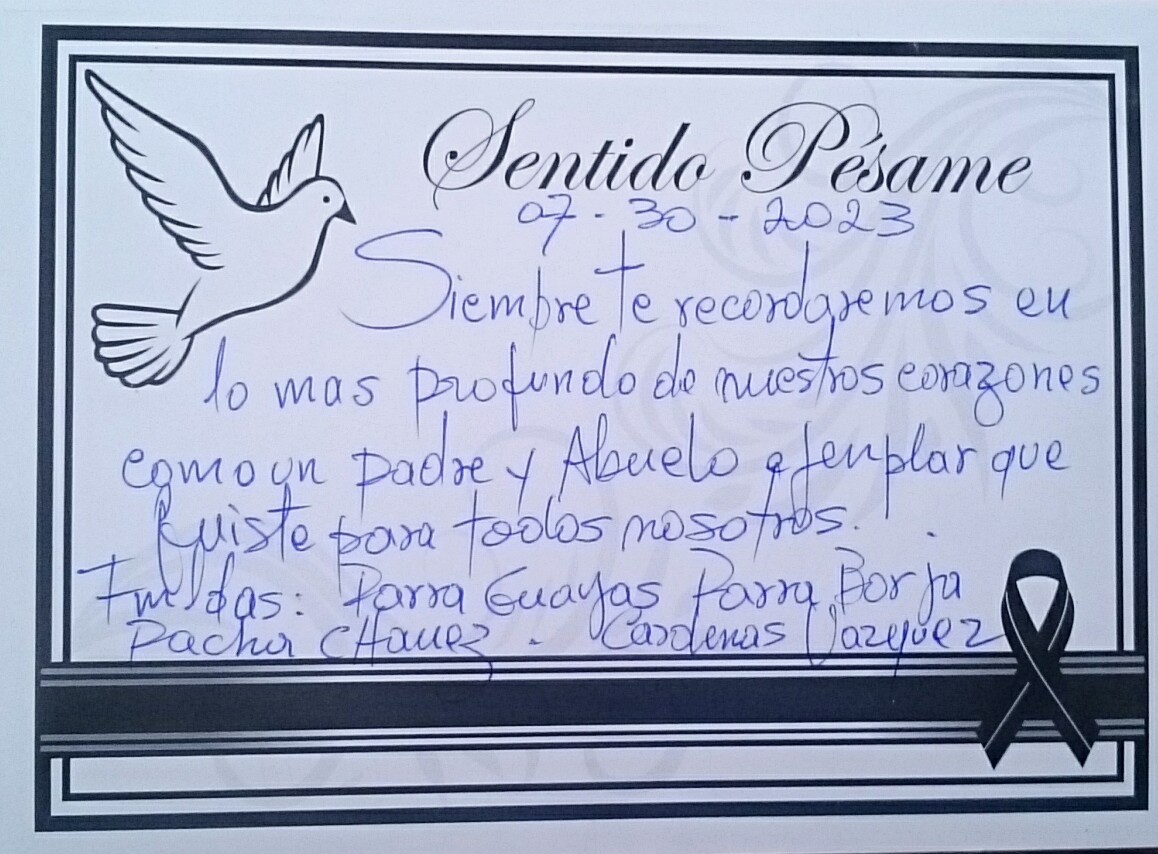 Sentido Pésame
07-30-2023
Siempre te recordaremos en
lo mas profundo de nuestros corazones
como un padre y Abuelo ejenplar que
fuiste para todos nosotros.
Parra Guayas Parra Borja
Pacha CHavez - Cardenas Vazquez